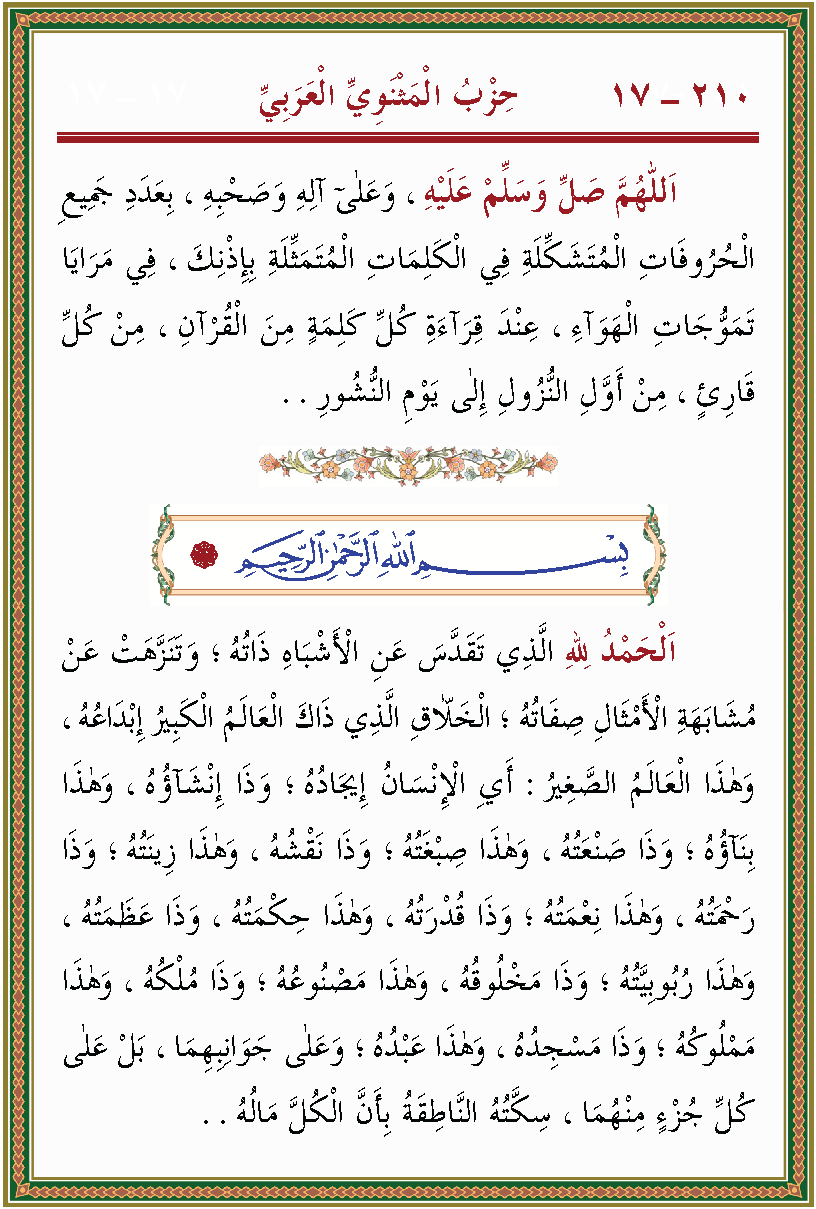 ٢١٠ – ١٧ حِزْبُ الْمَثْنَوِيِّ الْعَرَبِيِّ ١٧ – ١٧
اَللّٰهُمَّ صَلِّ وَسَلِّمْ عَلَيْهِ ، وَعَلٰىٓ آلِهِ وَصَحْبِهِ ، بِعَدَدِ جَمِيعِ
الْحُرُوفَاتِ الْمُتَشَكِّلَةِ فِي الْكَلِمَاتِ الْمُتَمَثِّلَةِ بِإِذْنِكَ ، فِي مَرَايَا
تَمَوُّجَاتِ الْهَوَآءِ ، عِنْدَ قِرَآءَةِ كُلِّ كَلِمَةٍ مِنَ الْقُرْآنِ ، مِنْ كُلِّ
قَارِئٍ ، مِنْ أَوَّلِ النُّزُولِ إِلٰى يَوْمِ النُّشُورِ . .
بِسْمِ اللّٰهِ الرَّحْمٰنِ الرَّحِيمِ
اَلْحَمْدُ لِلّٰهِ الَّذِي تَقَدَّسَ عَنِ الْأَشْبَاهِ ذَاتُهُ ؛ وَتَنَزَّهَتْ عَنْ
مُشَابَهَةِ الْأَمْثَالِ صِفَاتُهُ ؛ الْخَلَّاقِ الَّذِي ذَاكَ الْعَالَمُ الْكَبِيرُ إِبْدَاعُهُ ،
وَهٰذَا الْعَالَمُ الصَّغِيرُ : أَيِ الْإِنْسَانُ إِيجَادُهُ ؛ وَذَا إِنْشَآؤُهُ ، وَهٰذَا
بِنَآؤُهُ ؛ وَذَا صَنْعَتُهُ ، وَهٰذَا صِبْغَتُهُ ؛ وَذَا نَقْشُهُ ، وَهٰذَا زِينَتُهُ ؛ وَذَا
رَحْمَتُهُ ، وَهٰذَا نِعْمَتُهُ ؛ وَذَا قُدْرَتُهُ ، وَهٰذَا حِكْمَتُهُ ، وَذَا عَظَمَتُهُ ،
وَهٰذَا رُبُوبِيَّتُهُ ؛ وَذَا مَخْلُوقُهُ ، وَهٰذَا مَصْنُوعُهُ ؛ وَذَا مُلْكُهُ ، وَهٰذَا
مَمْلُوكُهُ ؛ وَذَا مَسْجِدُهُ ، وَهٰذَا عَبْدُهُ ؛ وَعَلٰى جَوَانِبِهِمَا ، بَلْ عَلٰى
كُلِّ جُزْءٍ مِنْهُمَا ، سِكَّتُهُ النَّاطِقَةُ بِأَنَّ الْكُلَّ مَالُهُ . .